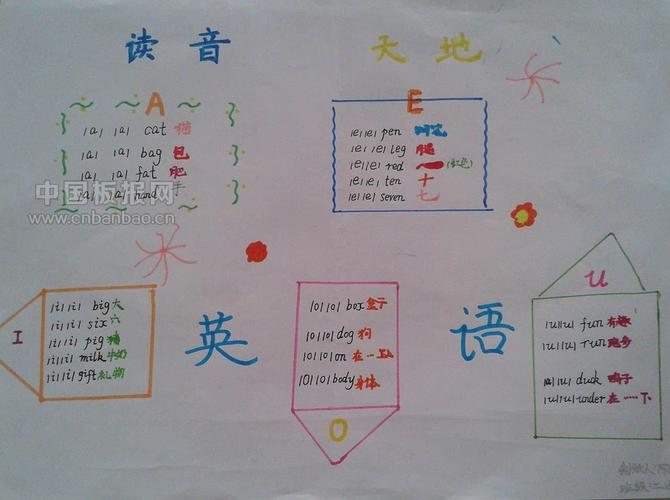 读音 天地
A
|a| |a| cat 猫
|a| |a| bag 包
|a| |a| fat 肥
|a| |a| hand 手
中国板报网
www.cnbanbao.cn
E
|e| |e| pen 钢笔
|e| |e| leg 腿
|e| |e| red (红色)
|e| |e| ten 十
|e| |e| seven 七
英 语
I
|i| |i| big 大
|i| |i| six 六
|i| |i| pig 猪
|i| |i| milk 牛奶
|i| |i| gift 礼物
|o| |o| box 盒子
|o| |o| dog 狗
|o| |o| on 在一上
|o| |o| body 身体
O
U
|u| |u| fun 有趣
|u| |u| run 跑步
|u| |u| duck 鸭子
|u| |u| under 在一下
制做人:陈
班级:二